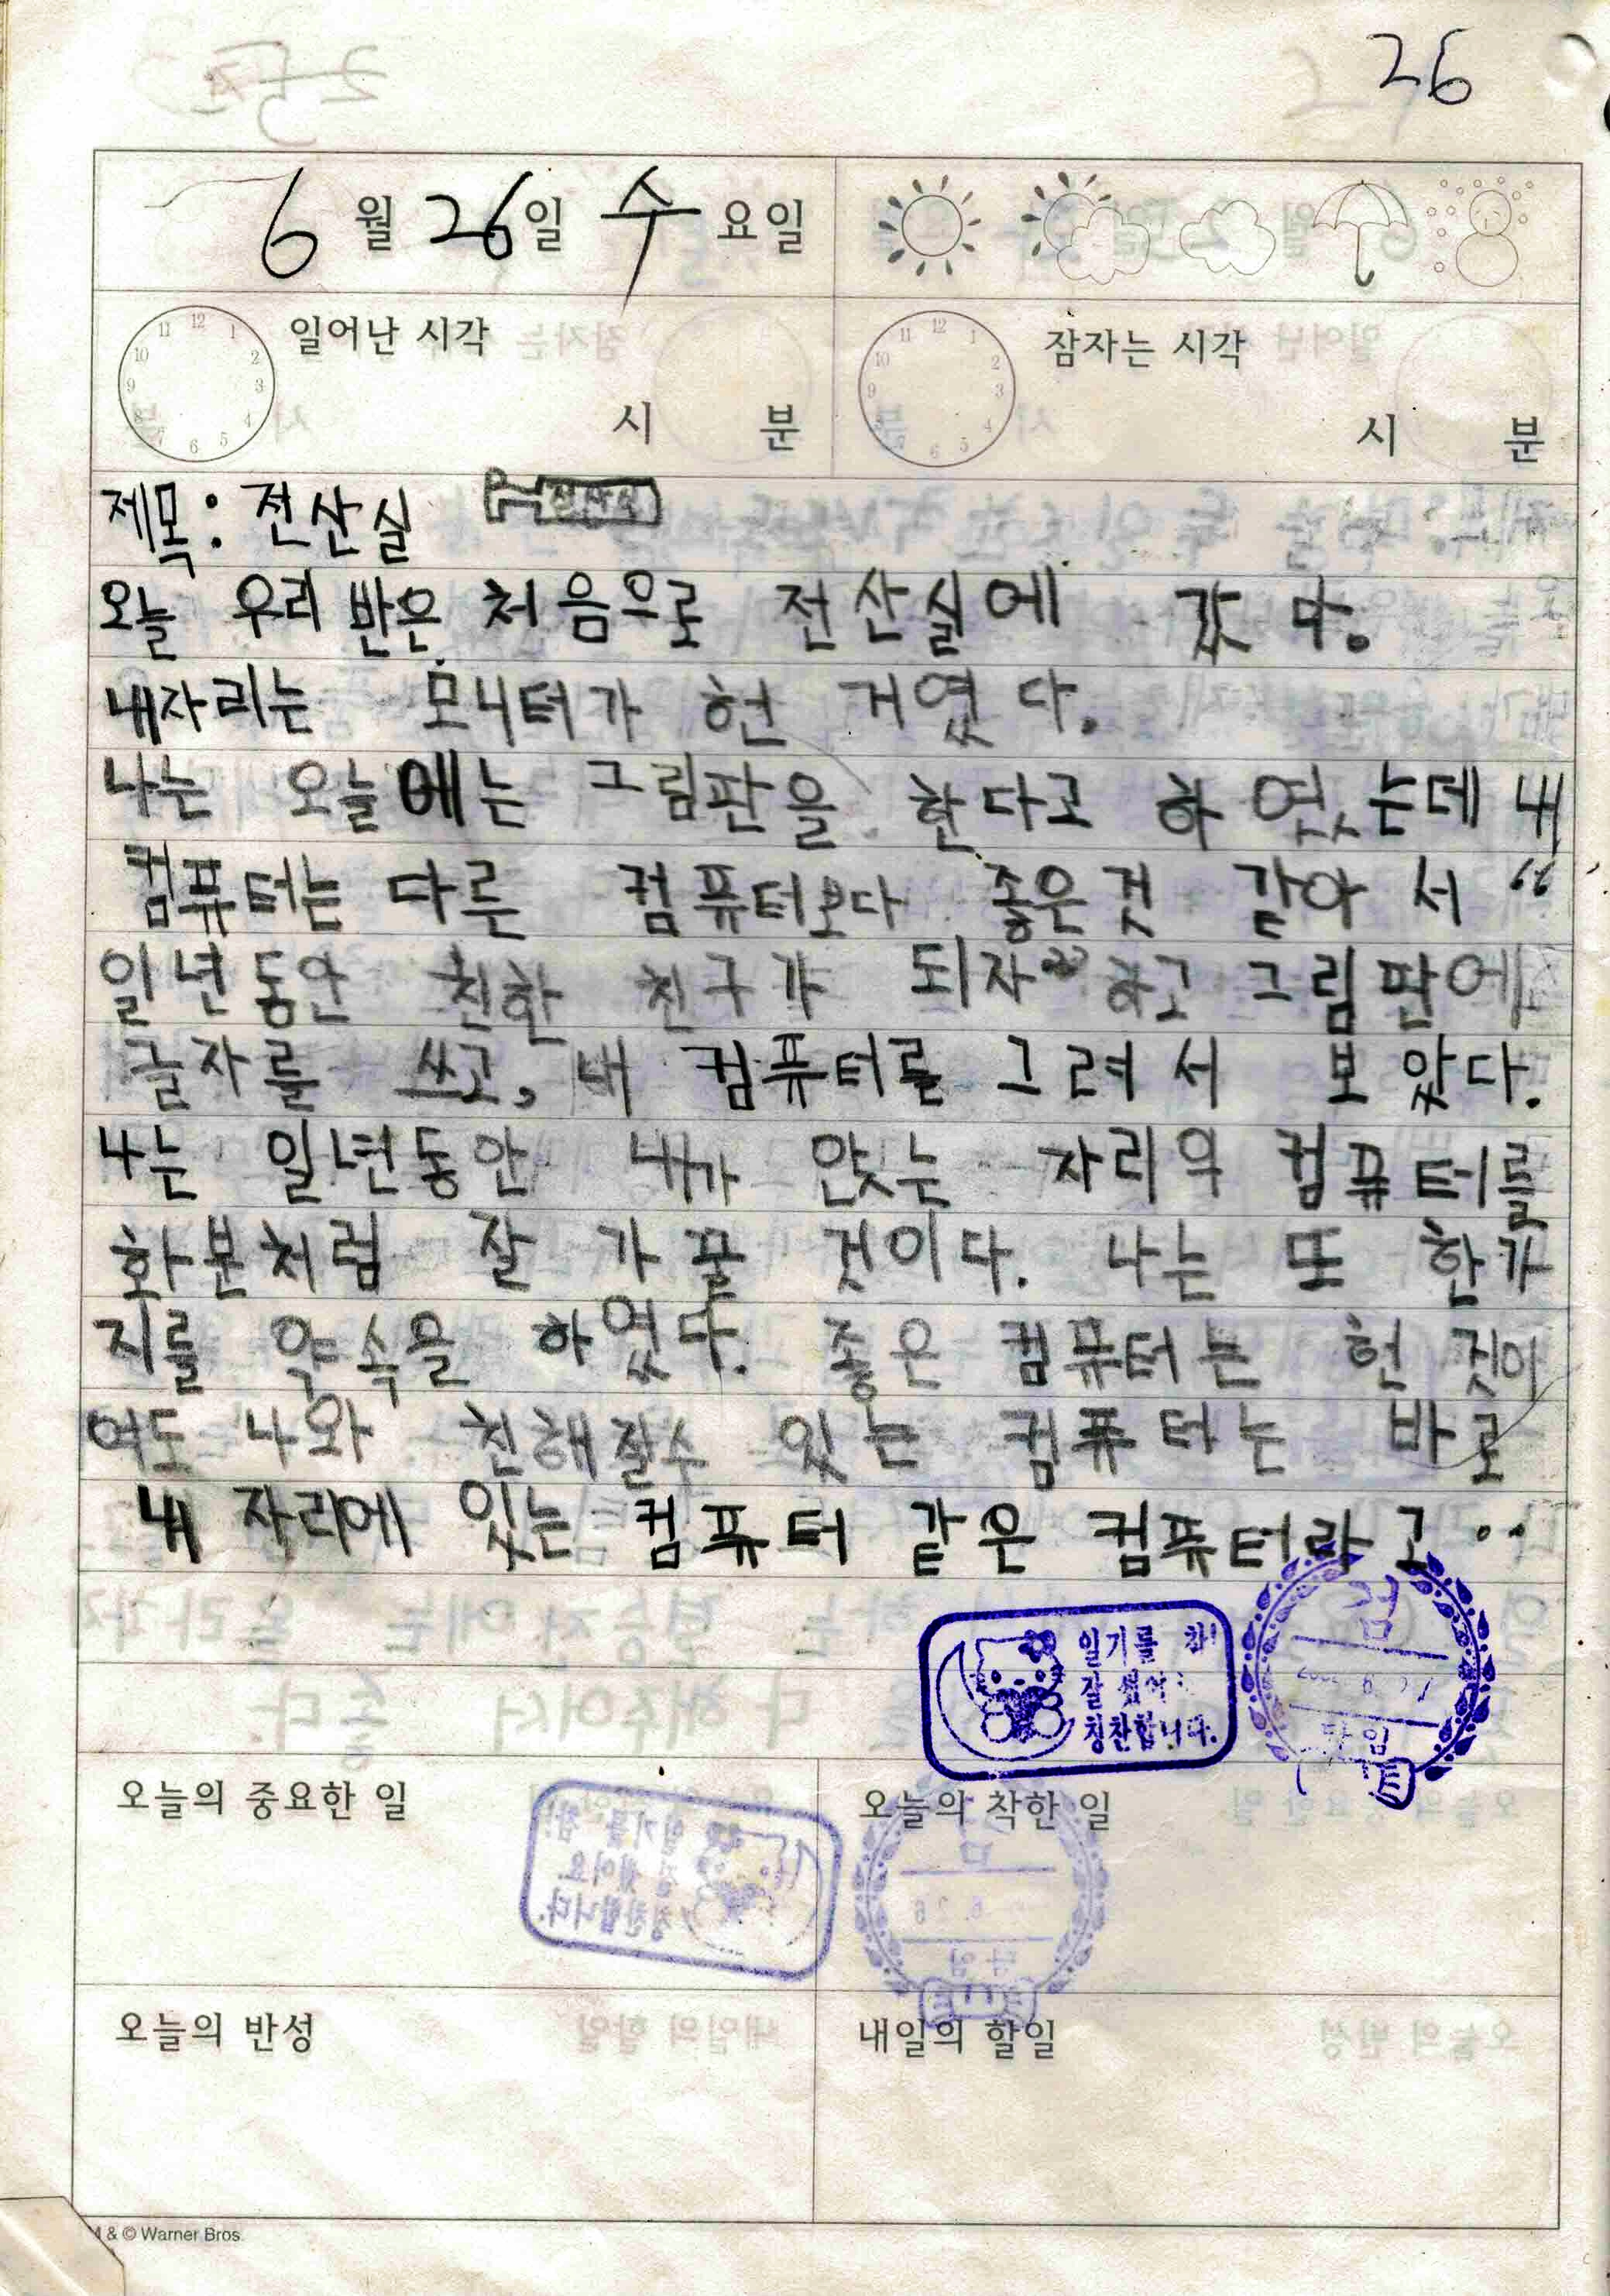 26
6월 26일 수요일
일어난 시각
시 분
잠자는 시각
시 분
제목: 전산실
전산실
오늘 우리 반은 처음으로 전산실에 갔다.
내자리는 모니터가 헌 거였다.
나는 오늘에는 그림판을 한다고 하였는데 내
컴퓨터는 다른 컴퓨터보다 좋은것 같아서 "
일년동안 친한 친구가 되자" 하고 그림판에
글자를 쓰고, 내 컴퓨터를 그려서 보았다.
나는 일년동안 내가 안잦는 자리의 컴퓨터를
화분처럼 잘 가꿀 것이다. 나는 또 한가
지를 약속을 하였다. 좋은 컴퓨터는 헌 것이
여도 나와 친해질수 있는 컴퓨터는 바로
내 자리에 있는 컴퓨터 같은 컴퓨터라고..
일기를 참!
잘 썼어요
칭찬합니다.
검
담임
오늘의 중요한 일
오늘의 착한 일
오늘의 반성
내일의 할일
& © Warner Bros.